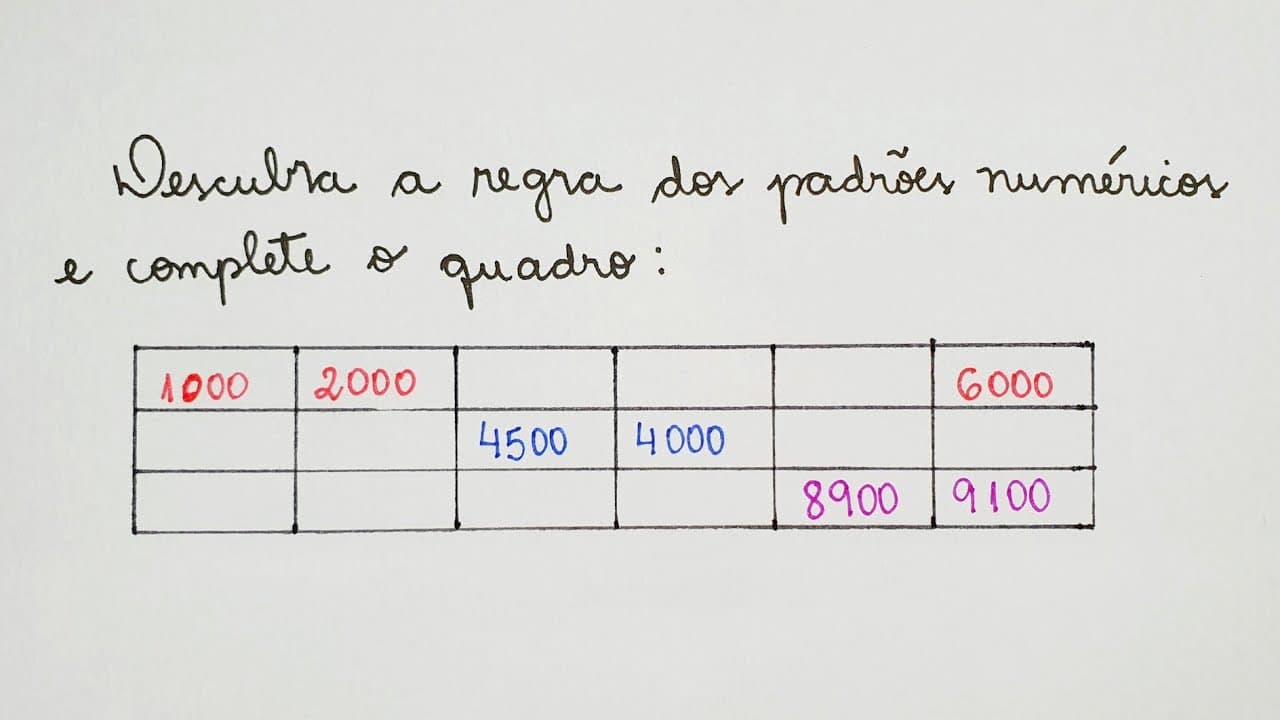 Descubra a regra dos padrões numéricos
e complete o quadro:
1000 2000 6000
4500 4000
8900 9100